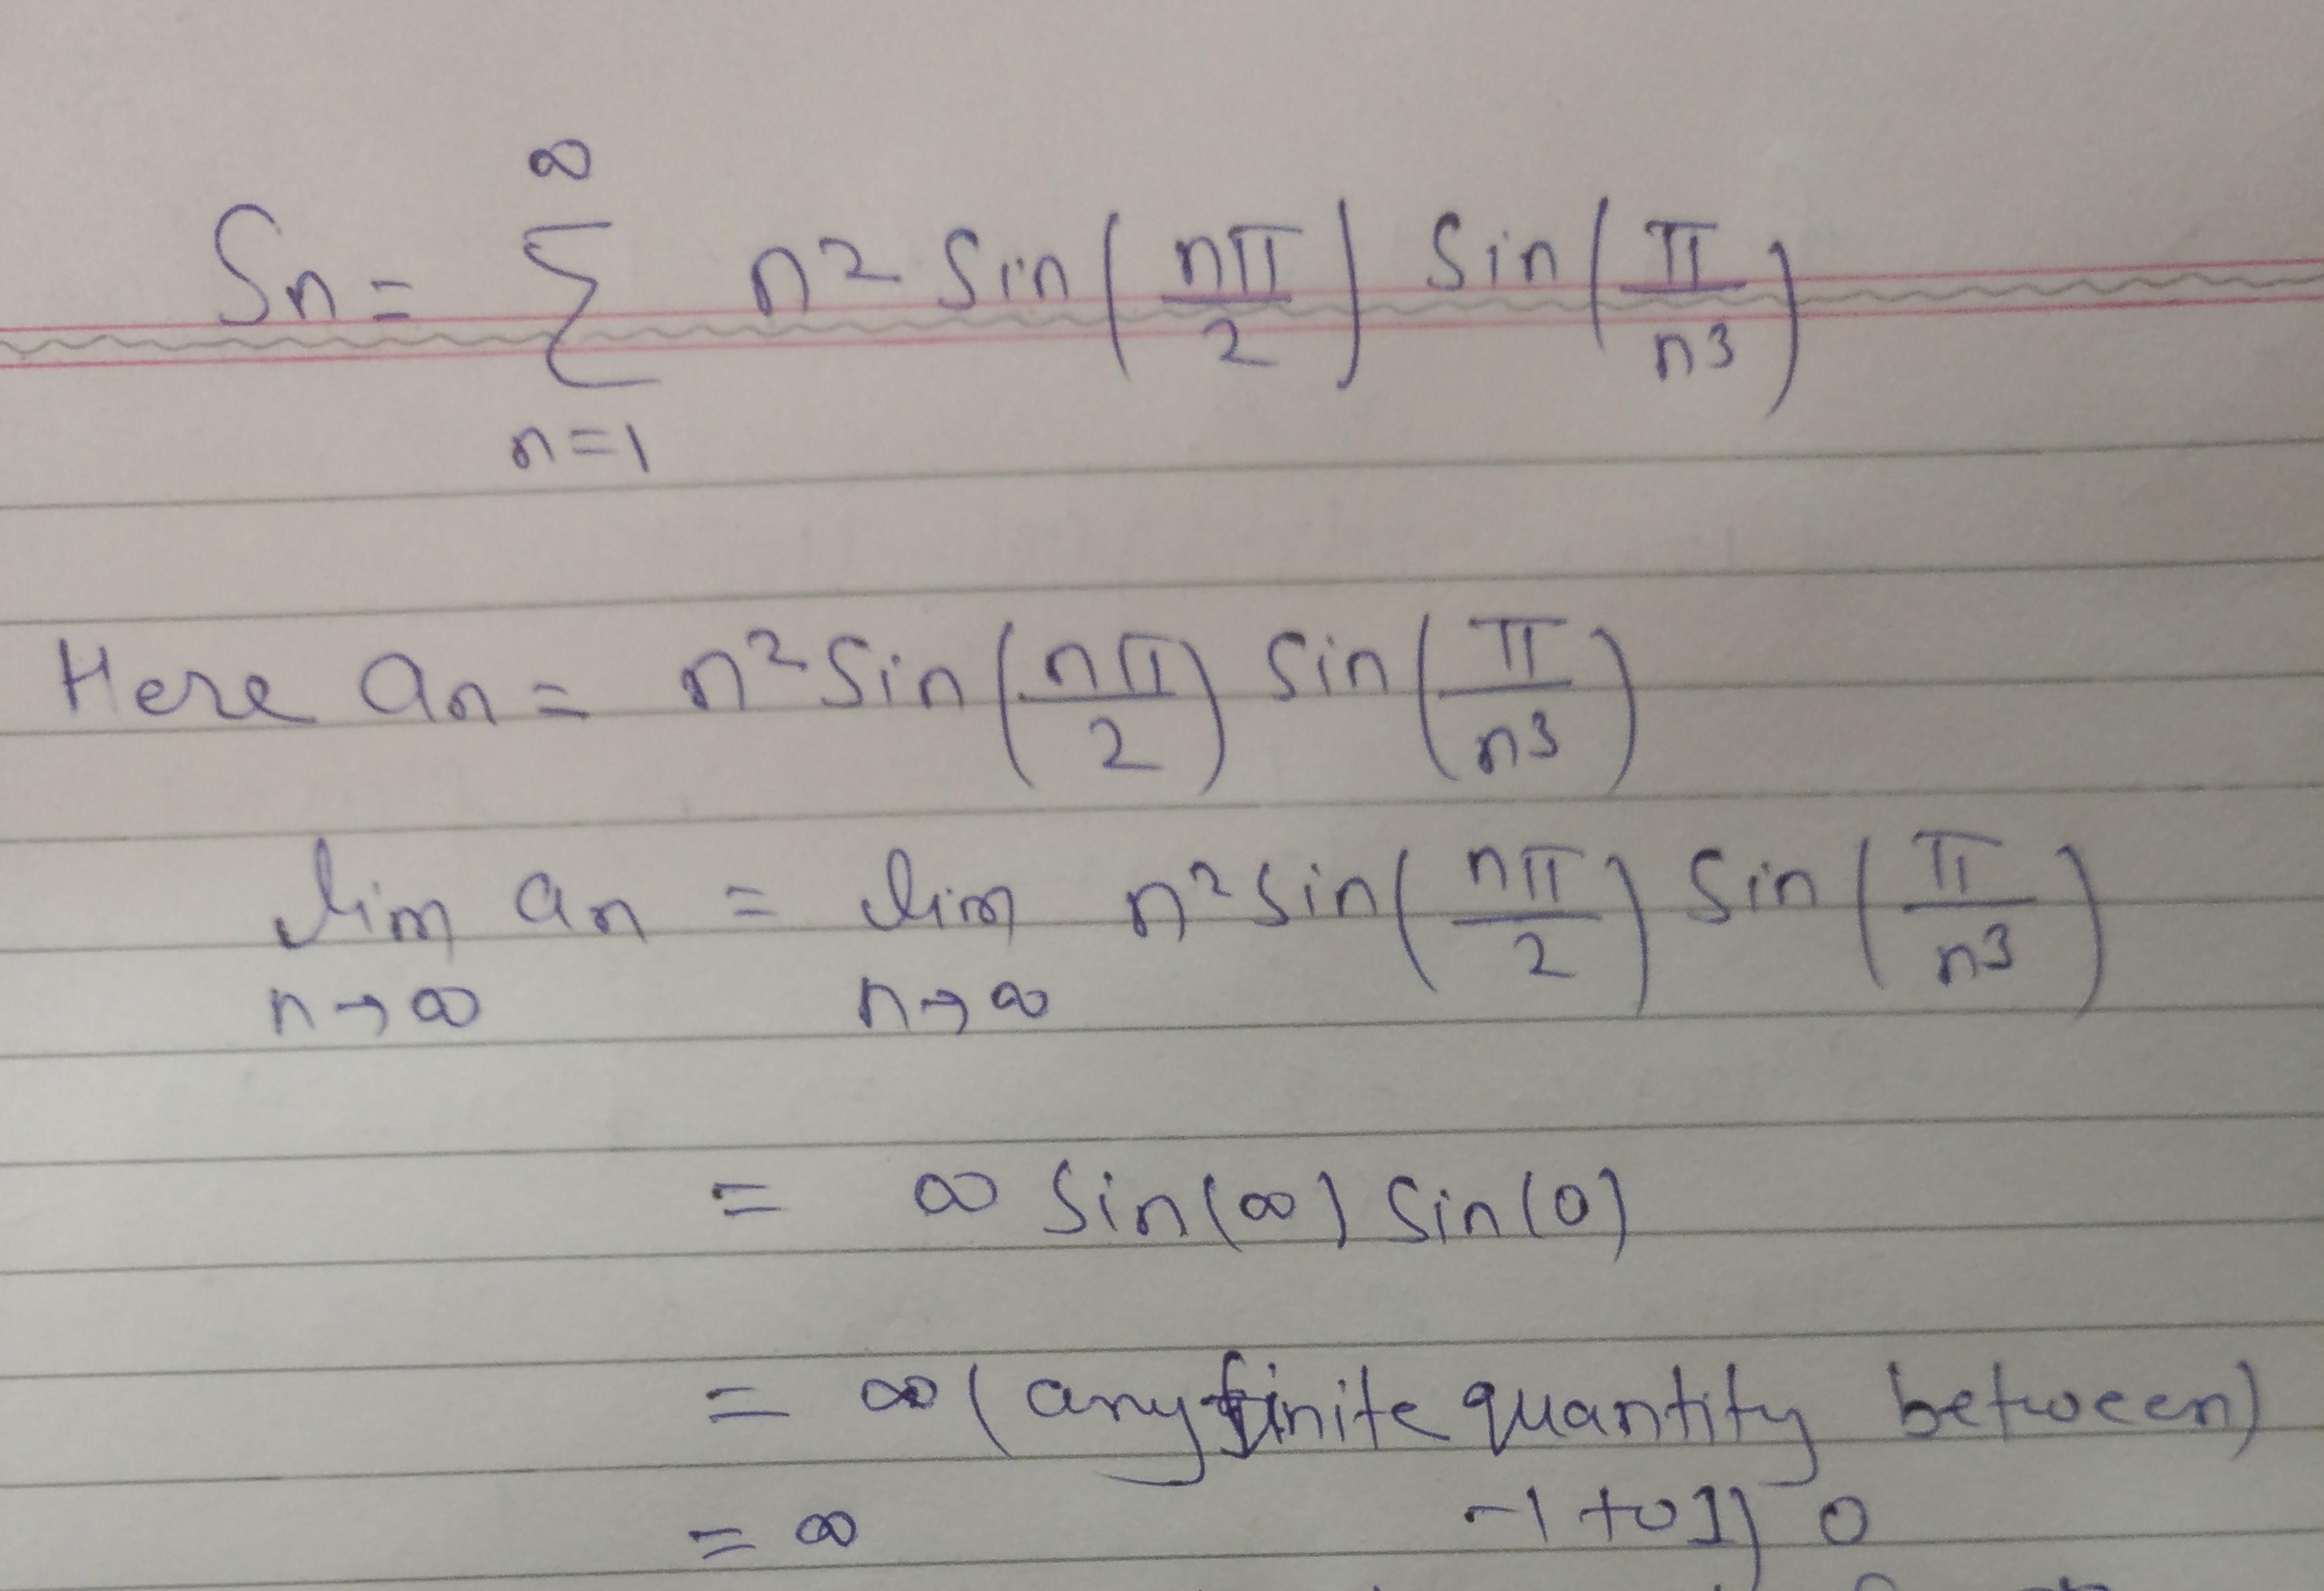 Sn = ∞ Σ n=1 n² Sin(nπ/2) Sin(π/n³)
Here an = n² Sin(nπ/2) Sin(π/n³)
lim n→∞ an = lim n→∞ n² Sin(nπ/2) Sin(π/n³)
= ∞ Sin(∞) Sin(0)
= ∞ (any finite quantity between)
-1 to 1) 0
= ∞